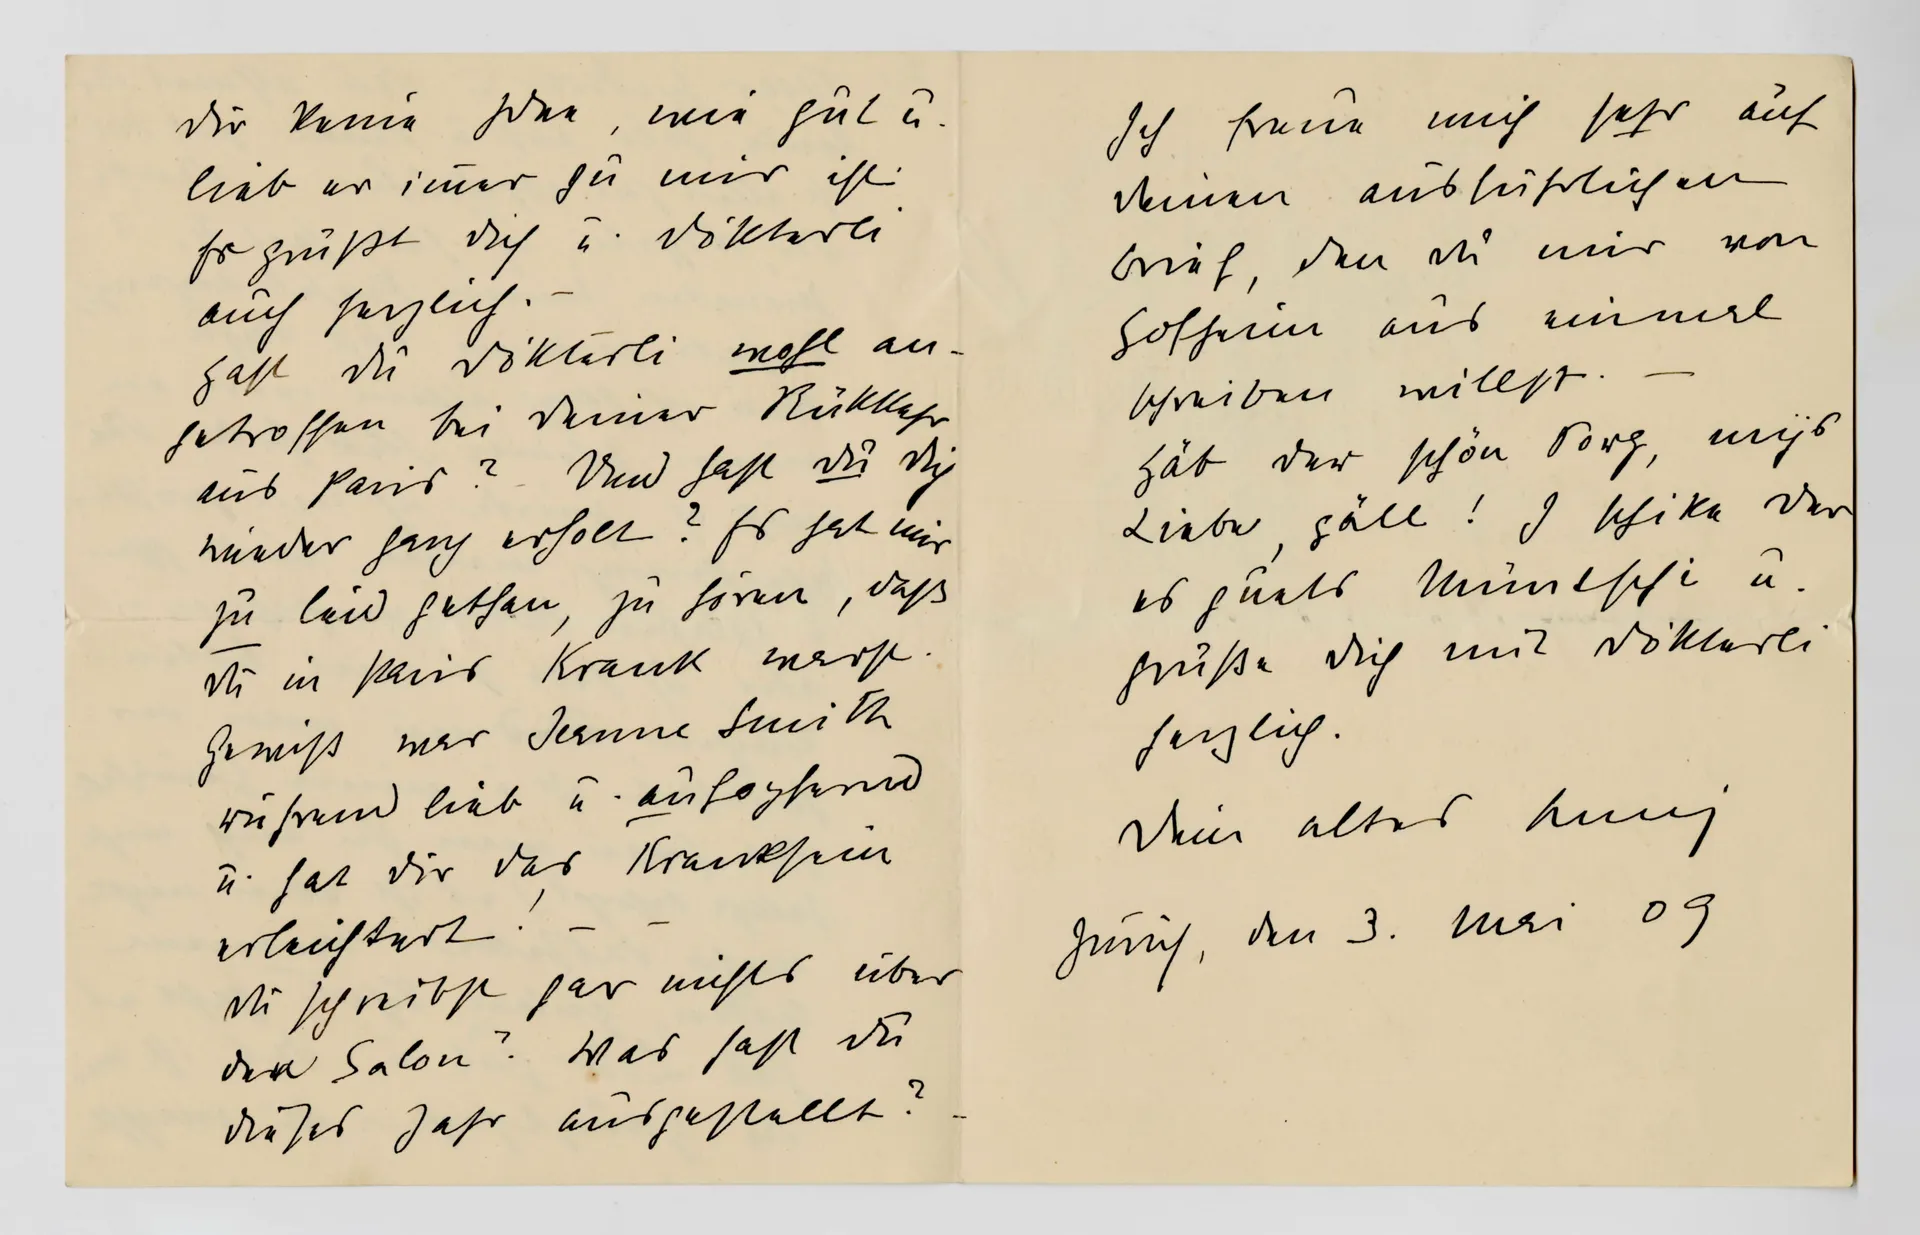 dir keine Idee, wie gut u.
lieb er im̄er zu mir ist.
Er grüßt dich u. Dökterli
auch herzlich. –
Hast du Dökterli wohl an-
getroffen bei deiner Rükkehr
aus Paris? Und hast du dich
wieder ganz erholt? Es hat mir
zu leid gethan, zu hören, daß
du in Paris krank warst.
Gewiß war Jeanne Smith
rührend lieb u. aufopfernd
u. hat dir das Kranksein
erleichtert! – –
Du schreibst gar nichts über
den Salon? Was hast du
dieses Jahr ausgestellt? –
Ich freue mich sehr auf
deinen ausführlichen
Brief, den du mir von
Hofheim aus einmal
schreiben willst. –
Häb der schön Sorg, mys
Liebe, gäll! I schike der
es guets Müntschi u.
grüße dich mit Dökterli
herzlich.
Dein altes
Zürich, den 3. Mai 09